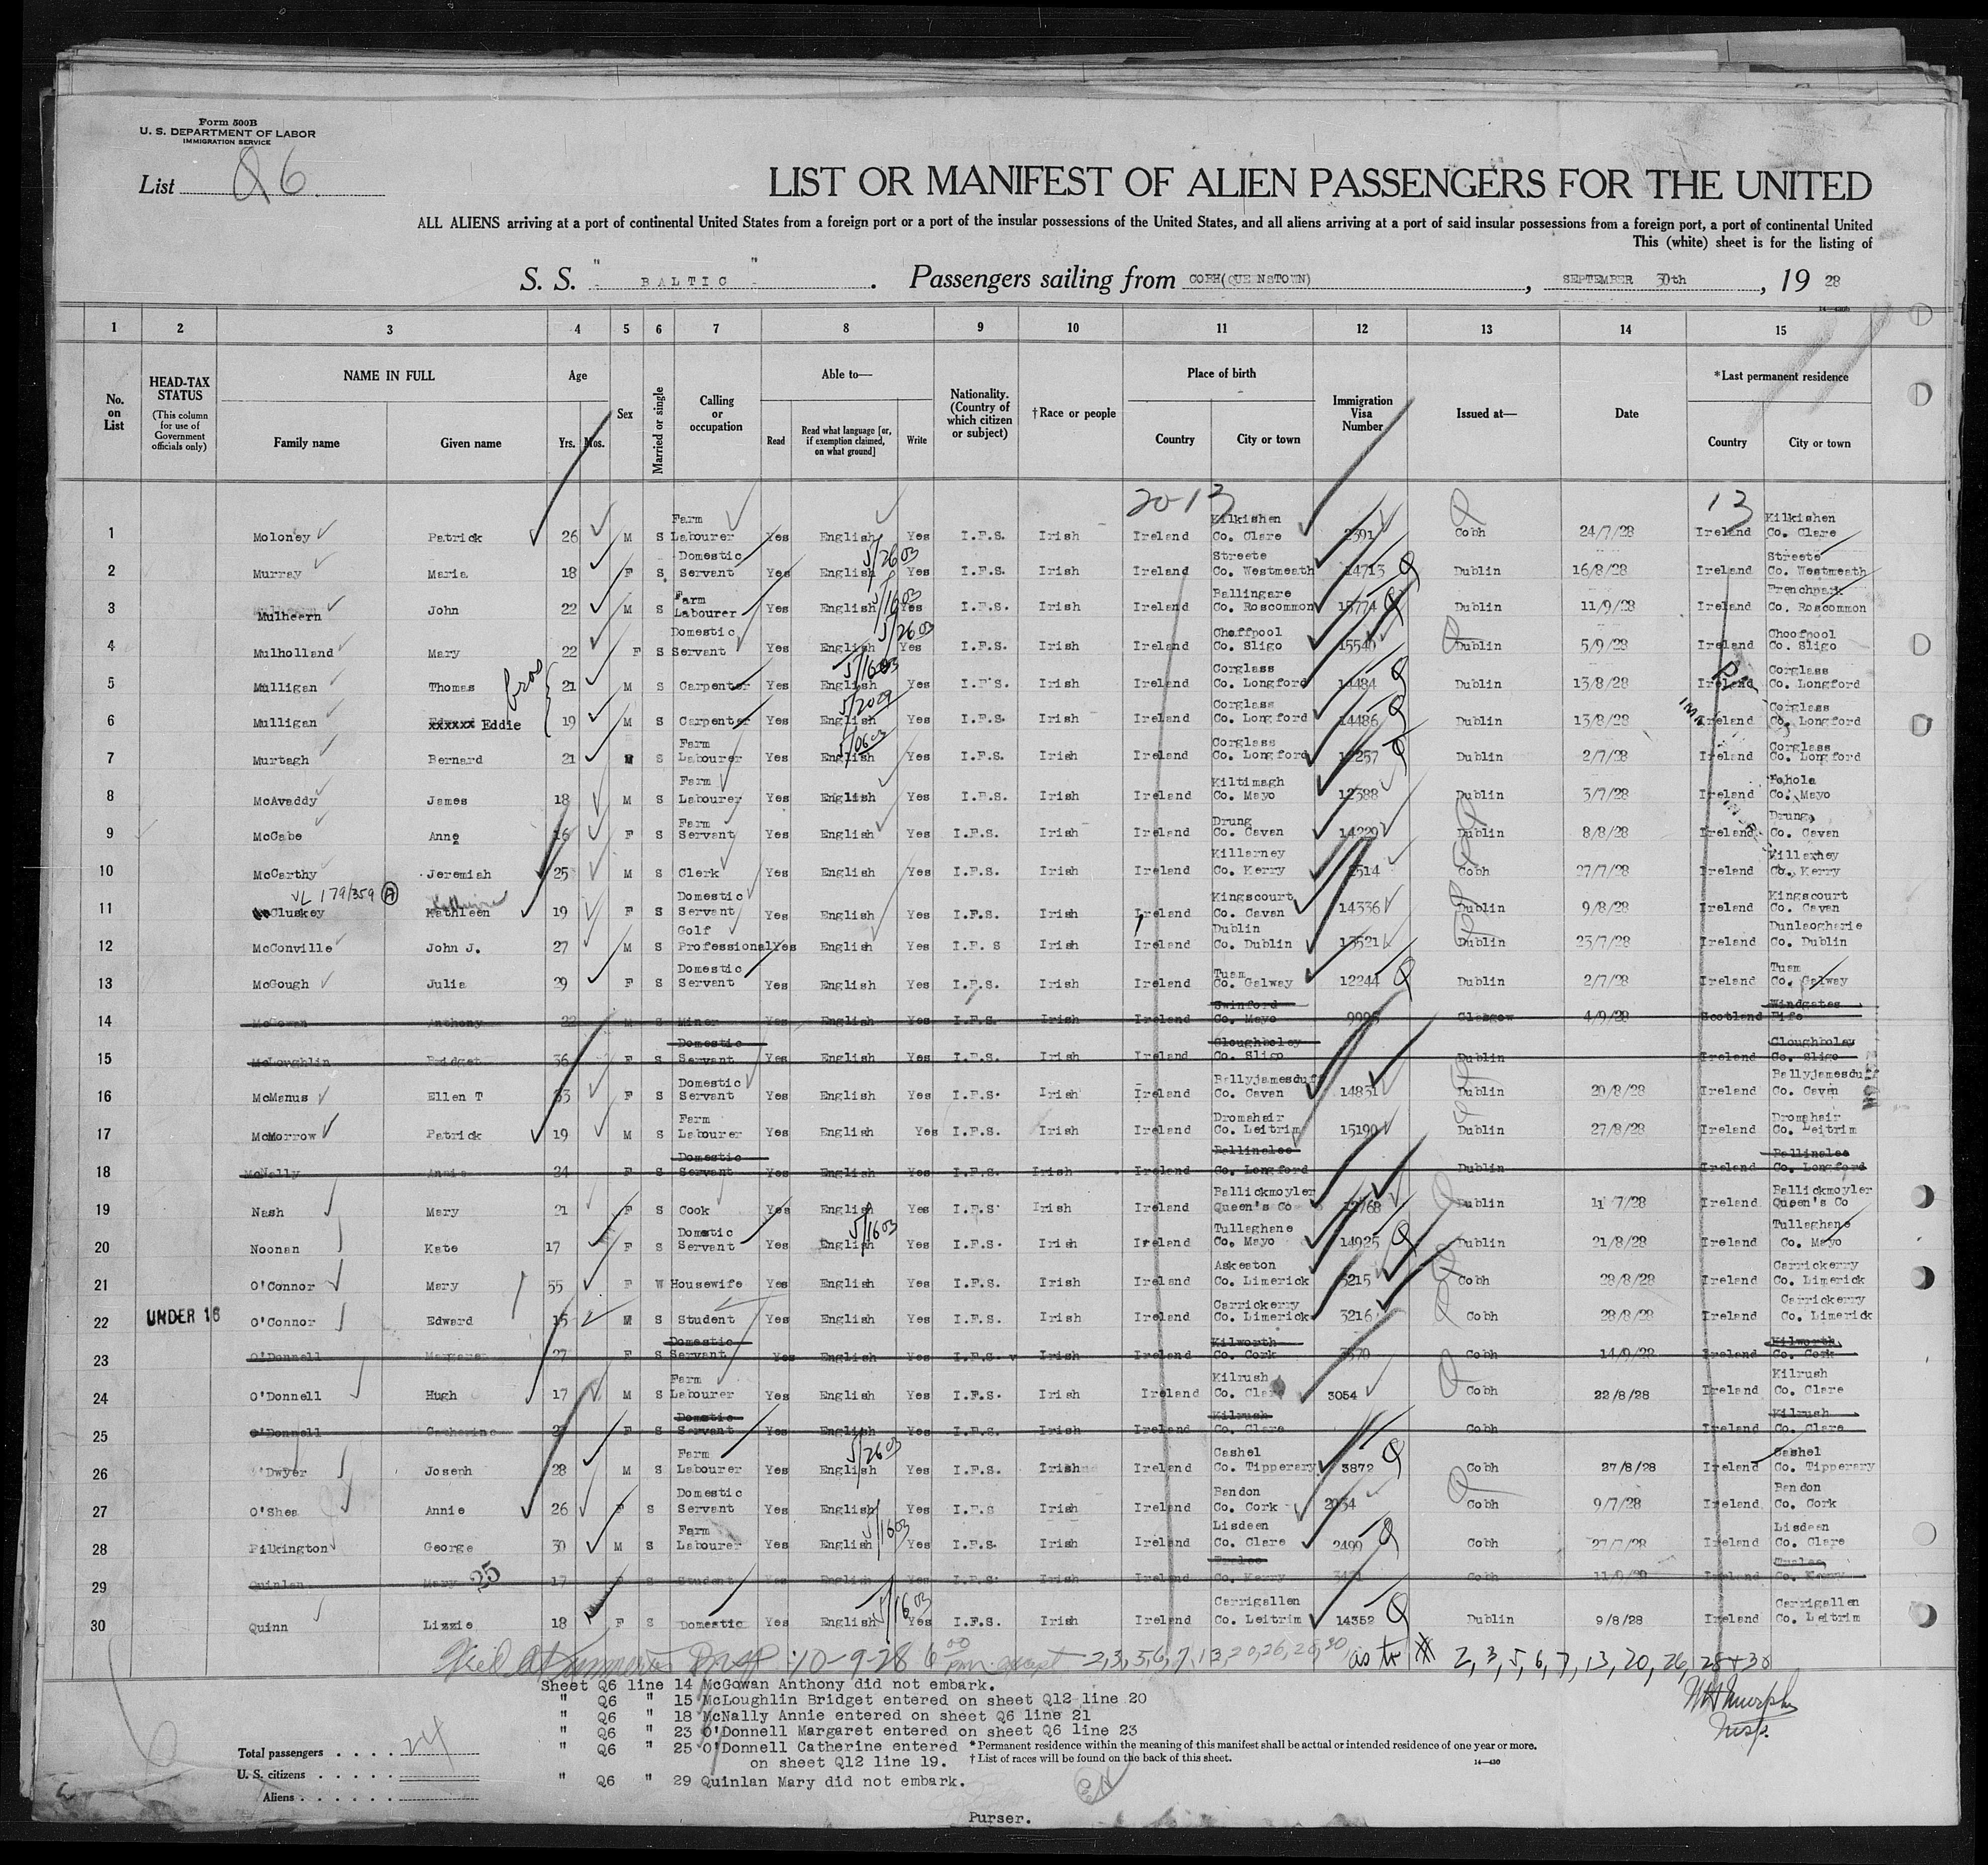 Form 500B
U. S. DEPARTMENT OF LABOR
IMMIGRATION SERVICE
List Q6.
LIST OR MANIFEST OF ALIEN PASSENGERS FOR THE UNITED
ALL ALIENS arriving at a port of continental United States from a foreign port or a port of the insular possessions of the United States, and all aliens arriving at a port of said insular possessions from a foreign port, a port of continental United
This (white) sheet is for the listing of
S. S. " BALTIC " . Passengers sailing from COBH(QUEENSTOWN) , SEPTEMBER 30th , 19 28
1 2 3 4 5 6 7 8 9 10 11 12 13 14 15
No. on List
HEAD-TAX STATUS (This column for use of Government officials only)
NAME IN FULL Family name Given name
Age Yrs. Mos.
Sex
Married or single
Calling or occupation
Able to— Read Read what language [or, if exemption claimed, on what ground] Write
Nationality. (Country of which citizen or subject)
†Race or people
Place of birth Country City or town
Immigration Visa Number
Issued at—
Date
*Last permanent residence Country City or town
20-13 13
1 Moloney Patrick 26 M S Farm Labourer Yes English Yes I.F.S. Irish Ireland Kilkishen Co. Clare 2391 Cobh 24/7/28 Ireland Kilkishen Co. Clare
2 Murray Maria 18 F S Domestic Servant Yes English 5/26 03 Yes I.F.S. Irish Ireland Streete Co. Westmeath 14713 Q Dublin 16/8/28 Ireland Streete Co. Westmeath
3 Mulheern John 22 M S Farm Labourer Yes English 5/16 03 Yes I.F.S. Irish Ireland Ballingare Co. Roscommon 15774 Q Dublin 11/9/28 Ireland Frenchpark Co. Roscommon
4 Mulholland Mary 22 F S Domestic Servant Yes English 5/26 03 Yes I.F.S. Irish Ireland Choffpool Co. Sligo 15540 Dublin 5/9/28 Ireland Choofpool Co. Sligo
5 Mulligan Thomas bros 21 M S Carpenter Yes English 5/16 03 Yes I.F.S. Irish Ireland Corglass Co. Longford 14484 Q Dublin 13/8/28 Ireland Corglass Co. Longford
6 Mulligan xxxxxx Eddie 19 M S Carpenter Yes English Yes I.F.S. Irish Ireland Corglass Co. Longford 14486 Q Dublin 13/8/28 Ireland Corglass Co. Longford
7 Murtagh Bernard 21 M S Farm Labourer Yes English Yes I.F.S. Irish Ireland Corglass Co. Longford 12257 Q Dublin 2/7/28 Ireland Corglass Co. Longford
8 McAvaddy James 18 M S Farm Labourer Yes English Yes I.F.S. Irish Ireland Kiltimagh Co. Mayo 12388 Dublin 3/7/28 Ireland Bohola Co. Mayo
9 McCabe Anne 16 F S Farm Servant Yes English Yes I.F.S. Irish Ireland Drung Co. Cavan 14229 Dublin 8/8/28 Ireland Drung Co. Cavan
10 McCarthy Jeremiah 25 M S Clerk Yes English Yes I.F.S. Irish Ireland Killarney Co. Kerry 2514 Cobh 27/7/28 Ireland Killarney Co. Kerry
VL 179/359 A
11 McCluskey Kathleen 19 F S Domestic Servant Yes English Yes I.F.S. Irish Ireland Kingscourt Co. Cavan 14336 Dublin 9/8/28 Ireland Kingscourt Co. Cavan
12 McConville John J. 27 M S Golf Professional Yes English Yes I.F. S Irish Ireland Dublin Co. Dublin 13521 Dublin 23/7/28 Ireland Dunlaoghario Co. Dublin
13 McGough Julia 29 F S Domestic Servant Yes English Yes I.F.S. Irish Ireland Tuam Co. Galway 12244 Q Dublin 2/7/28 Ireland Tuam Co. Galway
14 McGowan Anthony 22 M S Miner Yes English Yes I.F.S. Irish Ireland Swinford Co. Mayo Glasgow 4/9/28 Scotland Windgates Fife
15 McLoughlin Bridget 36 F S Domestic Servant Yes English Yes I.F.S. Irish Ireland Cloughboley Co. Sligo Dublin Ireland Cloughboley Co. Sligo
16 McManus Ellen T 33 F S Domestic Servant Yes English Yes I.F.S. Irish Ireland Ballyjamesduff Co. Cavan 14831 Dublin 20/8/28 Ireland Ballyjamesduff Co. Cavan
17 McMorrow Patrick 19 M S Farm Labourer Yes English Yes I.F.S. Irish Ireland Dromahair Co. Leitrim 15190 Dublin 27/8/28 Ireland Dromahair Co. Leitrim
18 McNally Annie 24 F S Domestic Servant Yes English Yes I.F.S. Irish Ireland Ballinalee Co. Longford Dublin Ireland Ballinalee Co. Longford
19 Nash Mary 21 F S Cook Yes English Yes I.F.S. Irish Ireland Ballickmoyler Queen's Co 12768 Dublin 11 7/28 Ireland Ballickmoyler Queen's Co
20 Noonan Kate 17 F S Domestic Servant Yes English 5/16 03 Yes I.F.S. Irish Ireland Tullaghane Co. Mayo 14925 Q Dublin 21/8/28 Ireland Tullaghane Co. Mayo
21 O'Connor Mary 55 F W Housewife Yes English Yes I.F.S. Irish Ireland Askeaton Co. Limerick 3215 Cobh 28/8/28 Ireland Carrickerry Co. Limerick
22 UNDER 16 O'Connor Edward 15 M S Student Yes English Yes I.F.S. Irish Ireland Carrickerry Co. Limerick 3216 Cobh 28/8/28 Ireland Carrickerry Co. Limerick
23 O'Donnell Margaret 27 F S Domestic Servant Yes English Yes I.F.S. Irish Ireland Kilworth Co. Cork Cobh 14/9/28 Ireland Kilworth Co. Cork
24 O'Donnell Hugh 17 M S Farm Labourer Yes English Yes I.F.S. Irish Ireland Kilrush Co. Clare 3054 Cobh 22/8/28 Ireland Kilrush Co. Clare
25 O'Donnell Catherine F S Domestic Servant Yes English Yes I.F.S. Irish Ireland Kilrush Co. Clare Cobh Ireland Kilrush Co. Clare
26 O'Dwyer Joseph 28 M S Farm Labourer Yes English 5/26 03 Yes I.F.S. Irish Ireland Cashel Co. Tipperary 3872 Q Cobh 27/8/28 Ireland Cashel Co. Tipperary
27 O'Shea Annie 26 F S Domestic Servant Yes English Yes I.F.S Irish Ireland Bandon Co. Cork Cobh 9/7/28 Ireland Bandon Co. Cork
28 Pilkington George 30 M S Farm Labourer Yes English 5/16 03 Yes I.F.S. Irish Ireland Lisdeen Co. Clare 2499 Q Cobh 27/7/28 Ireland Lisdeen Co. Clare
29 Quinlan Mary 17 F S Student Yes English Yes I.F.S. Irish Ireland Tralee Co. Kerry Cobh 11/9/28 Ireland Tralee Co. Kerry
30 Quinn Lizzie 18 F S Domestic Yes English 5/16 03 Yes I.F.S. Irish Ireland Carrigallen Co. Leitrim 14352 Q Dublin 9/8/28 Ireland Carrigallen Co. Leitrim
10-9-28 6 00 pm except 2,3,5,6,7,13,20,26,28,30, as to # 2, 3, 5, 6, 7, 13, 20, 26, 28 + 30
Sheet Q6 line 14 McGowan Anthony did not embark.
" Q6 " 15 McLoughlin Bridget entered on sheet Q12 line 20
" Q6 " 18 McNally Annie entered on sheet Q6 line 21
" Q6 " 23 O'Donnell Margaret entered on sheet Q6 line 23
" Q6 " 25 O'Donnell Catherine entered
on sheet Q12 line 19.
" Q6 " 29 Quinlan Mary did not embark.
Murphy
Insp.
Total passengers . . . . 24
U. S. citizens . . . . .
Aliens . . . . . .
*Permanent residence within the meaning of this manifest shall be actual or intended residence of one year or more.
†List of races will be found on the back of this sheet.
14—430
Purser.